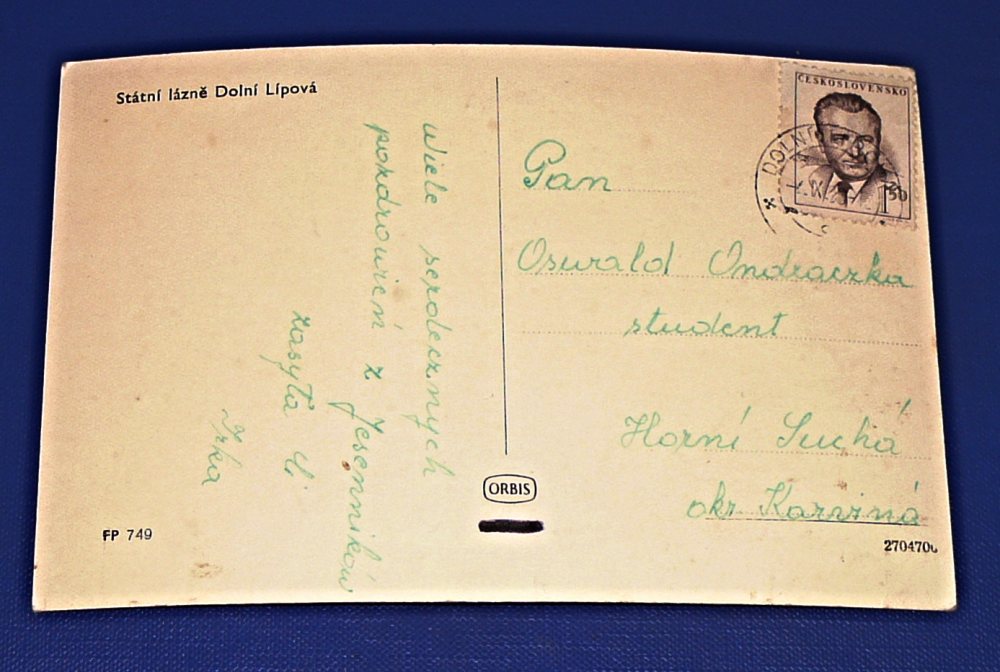 Státní lázně Dolní Lípová
Wiele serdecznych
pozdrowień z Jesenników
zasyła Ci
Irka
FP 749
ORBIS
ČESKOSLOVENSKO
1 50
DOLNÍ
Pan
Oswald Ondraczka
student
Horní Suchá
okr Karviná
270470